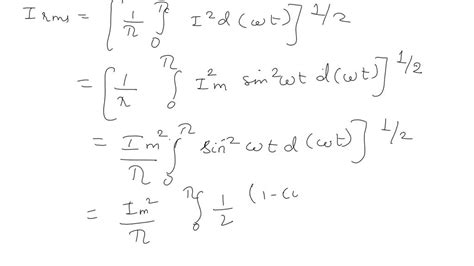 I rms = [ 1/π ∫₀^π I² d(ωt) ]^1/2
= [ 1/π ∫₀^π I²m sin²ωt d(ωt) ]^1/2
= Im²/π ∫₀^π sin² ωt d(ωt) ]^1/2
= Im²/π ∫₀^π 1/2 (1-Co